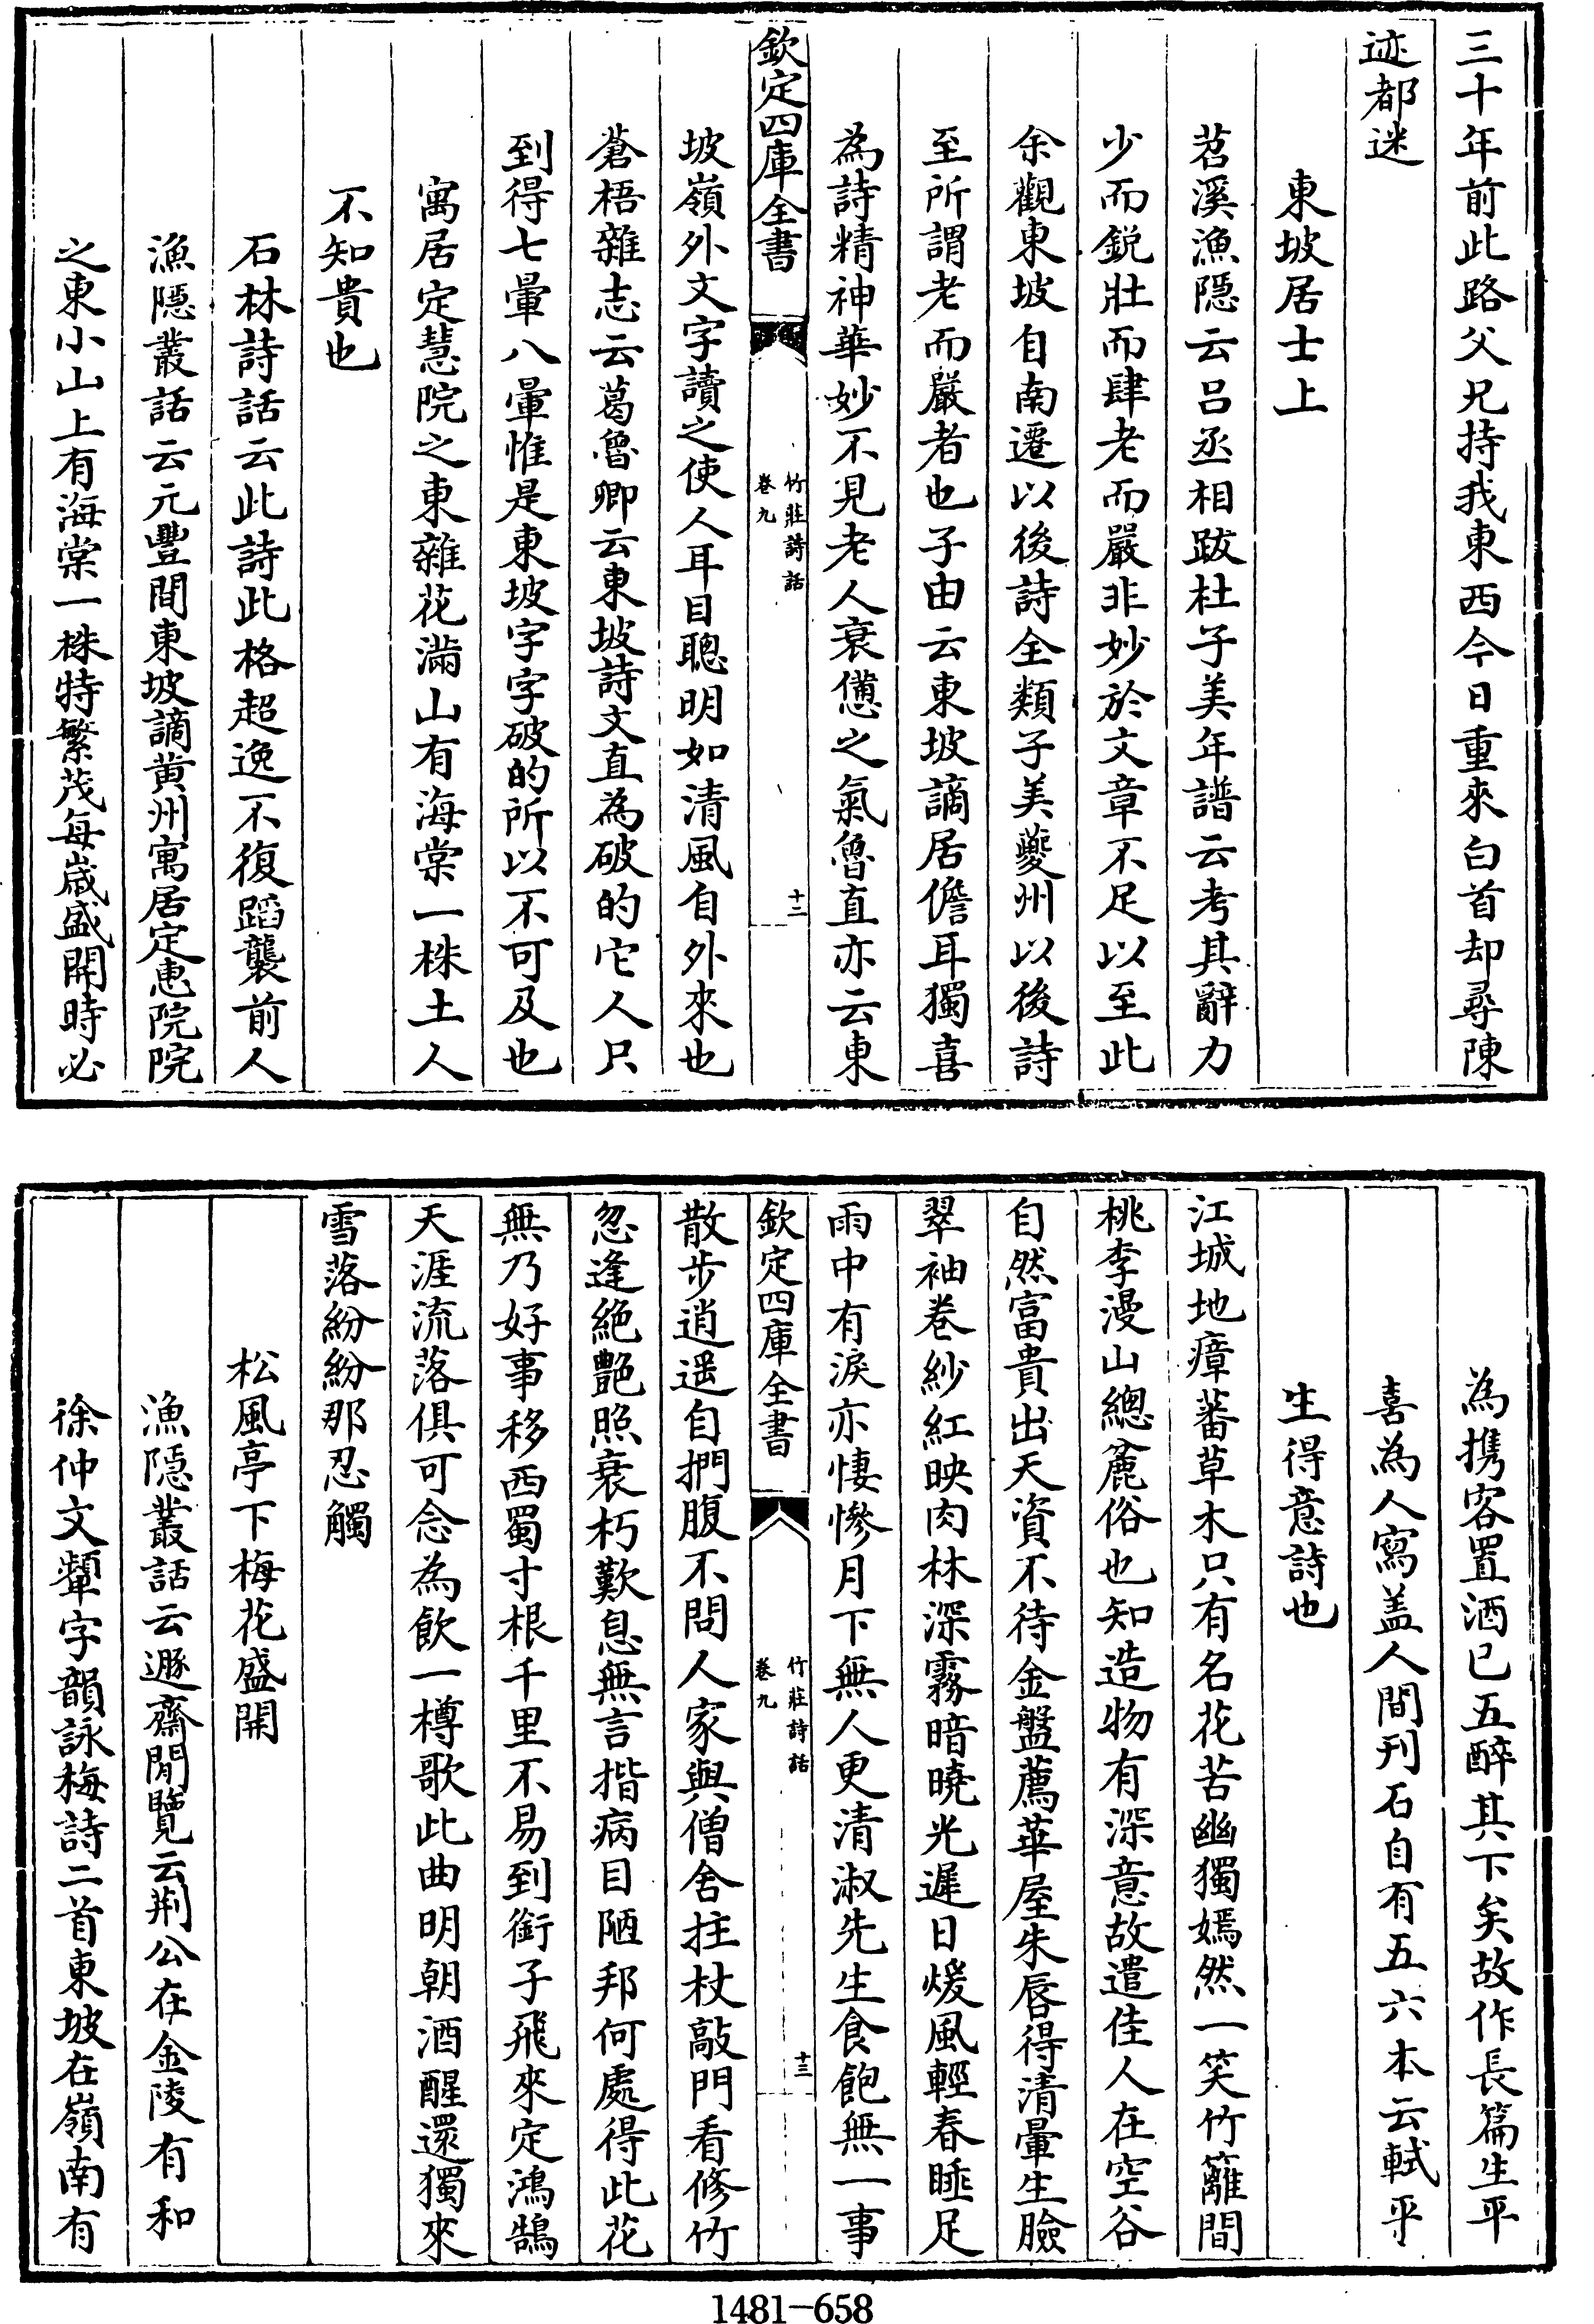 三十年前此路父兄持我東西今日重來白首却尋陳
迹都迷
東坡居士上
苕溪漁隱云呂丞相跋杜子美年譜云考其辭力
少而鋭壯而肆老而嚴非妙於文章不足以至此
余觀東坡自南遷以後詩全類子美夔州以後詩
至所謂老而嚴者也子由云東坡謫居儋耳獨喜
為詩精神華妙不見老人衰憊之氣魯直亦云東
欽定四庫全書
竹莊詩話
卷九
十二
坡嶺外文字讀之使人耳目聰明如清風自外來也
蒼梧雜志云葛魯卿云東坡詩文直為破的它人只
到得七暈八暈惟是東坡字字破的所以不可及也
寓居定慧院之東雜花滿山有海棠一株土人
不知貴也
石林詩話云此詩此格超逸不復蹈襲前人
漁隱叢話云元豐間東坡謫黄州寓居定惠院院
之東小山上有海棠一株特繁茂每嵗盛開時必
為携客置酒已五醉其下矣故作長篇生平
喜為人寫盖人間刋石自有五六本云軾乎
生得意詩也
江城地瘴蕃草木只有名花苦幽獨嫣然一笑竹籬間
桃李漫山總麄俗也知造物有深意故遣佳人在空谷
自然富貴出天資不待金盤薦華屋朱唇得清暈生臉
翠袖卷紗紅映肉林深霧暗曉光遲日煖風輕春睡足
雨中有淚亦悽慘月下無人更清淑先生食飽無一事
欽定四庫全書
竹莊詩話
卷九
十三
散步逍遥自捫腹不問人家與僧舍拄杖敲門看修竹
忽逢絶艷照衰朽歎息無言揩病目陋邦何處得此花
無乃好事移西蜀寸根千里不易到銜子飛來定鴻鵠
天涯流落俱可念為飲一樽歌此曲明朝酒醒還獨來
雪落紛紛那忍觸
松風亭下梅花盛開
漁隱叢話云遯齋閒覽云荆公在金陵有和
徐仲文顰字韻詠梅詩二首東坡在嶺南有
1481-658